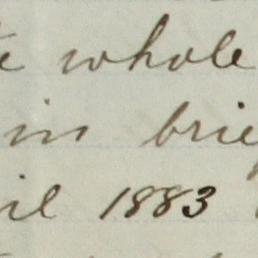 whole
in brie
il 1883